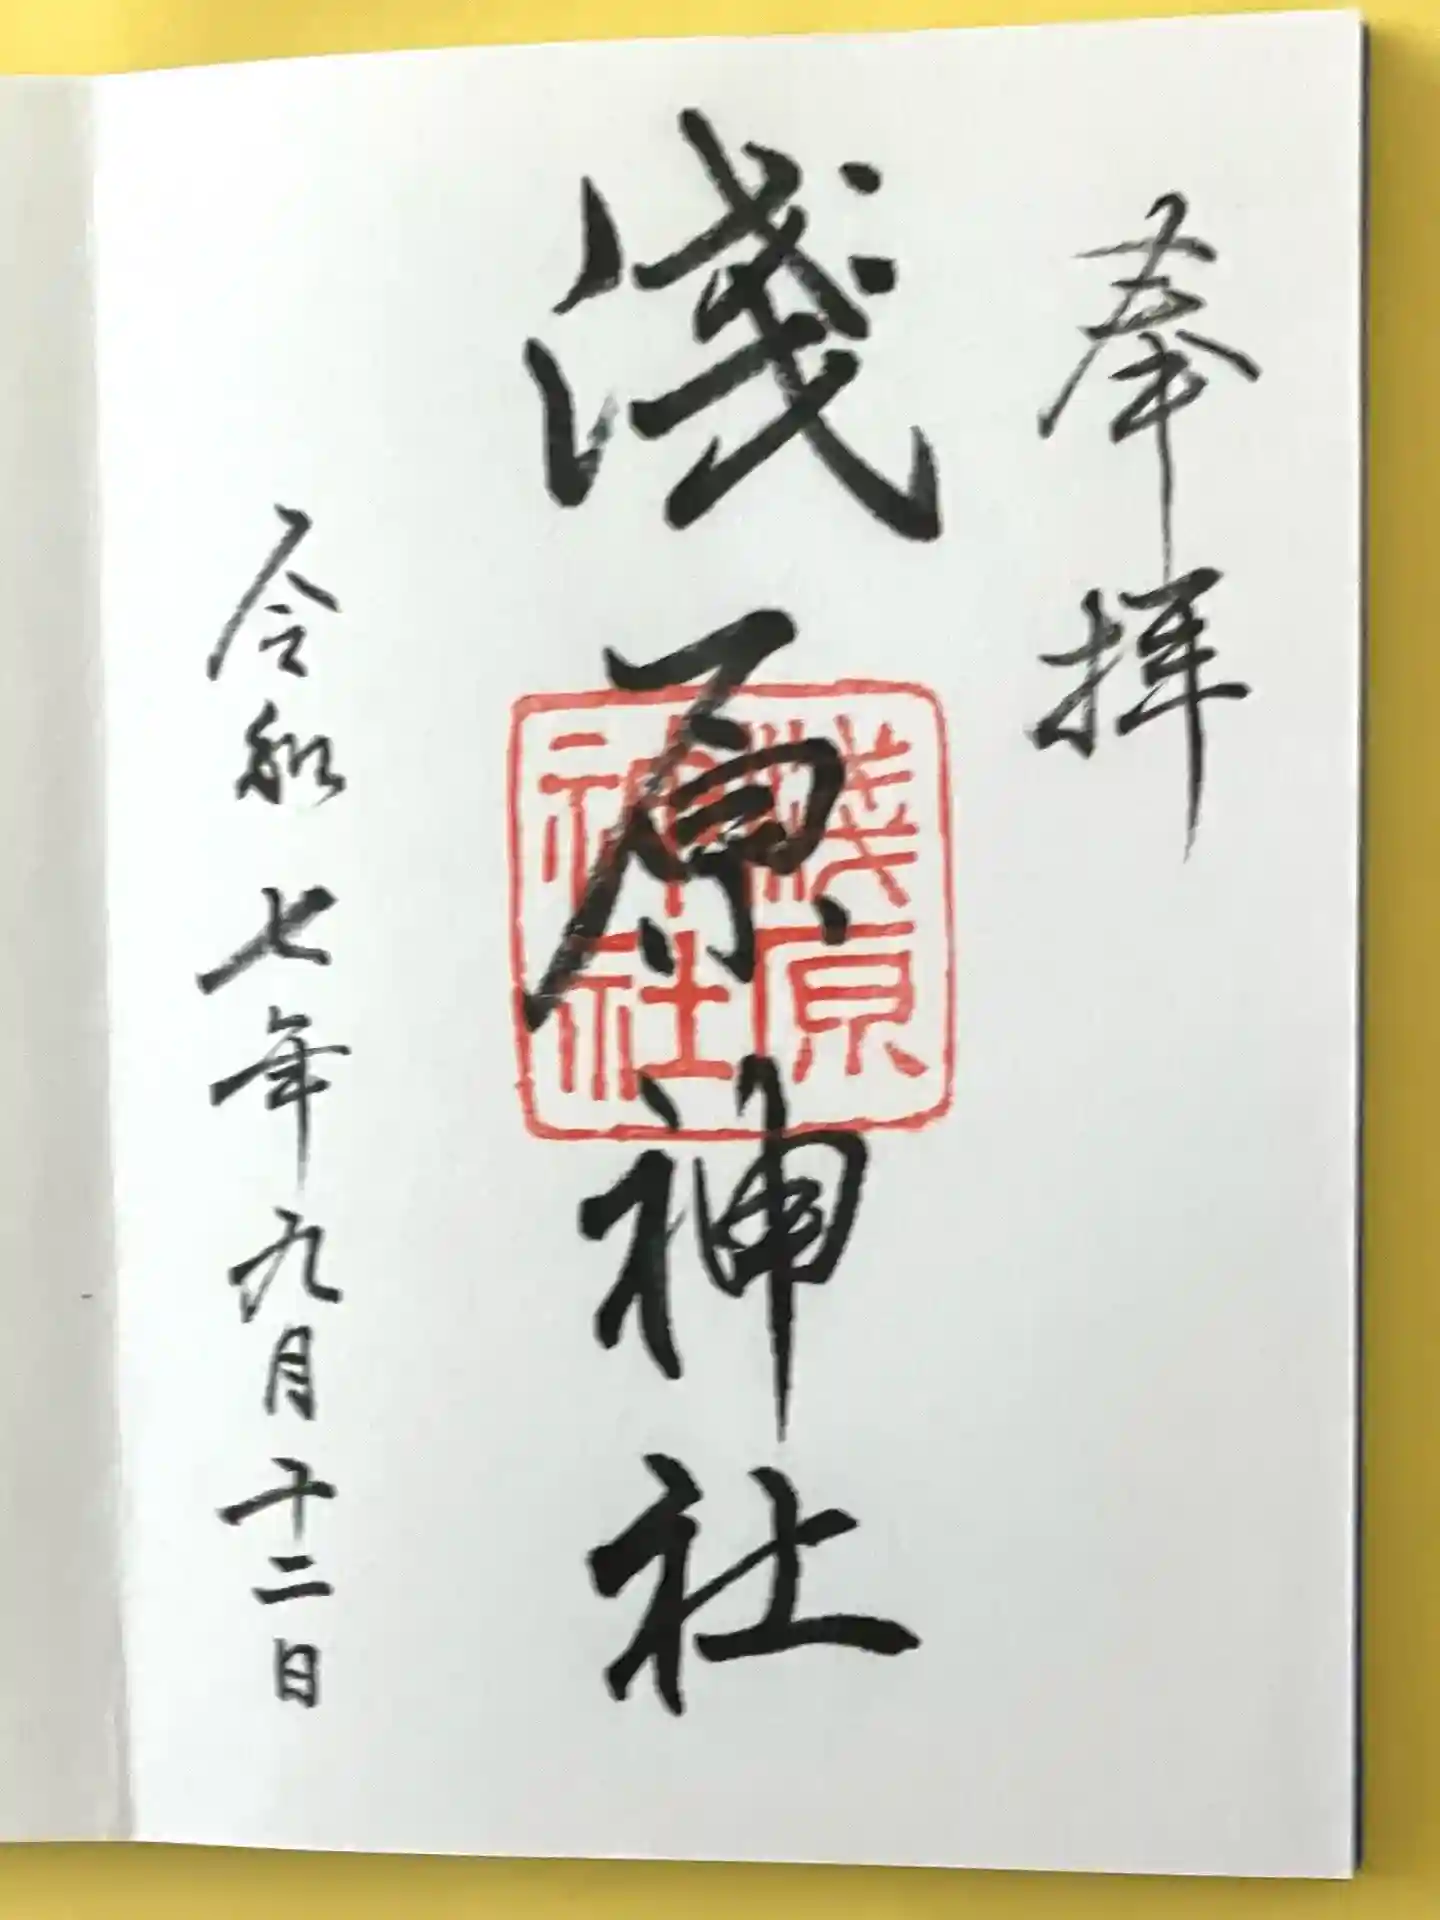 奉拝
淺原神社
淺原
神社
令和七年九月十二日